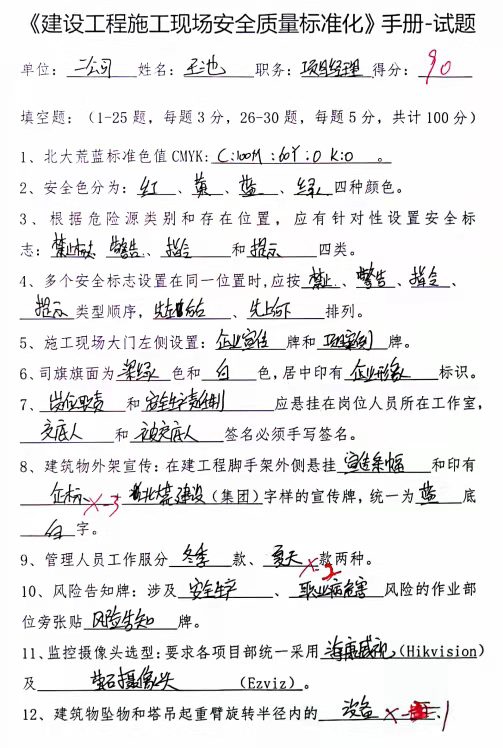 《建设工程施工现场安全质量标准化》手册-试题
单位：二公司 姓名：王池 职务：项目经理 得分：90
填空题：（1-25 题，每题 3 分，26-30 题，每题 5 分，共计 100 分）
1、北大荒蓝标准色值 CMYK：C:100M:60Y:0 K:0 。
2、安全色分为：红、黄、蓝、绿四种颜色。
3、根据危险源类别和存在位置，应有针对性设置安全标
志：禁止标志 警告、指令 和提示 四类。
4、多个安全标志设置在同一位置时，应按禁止、警告、指令、
提示类型顺序，先左后右、先上后下 排列。
5、施工现场大门左侧设置：企业宣传 牌和项目案例 牌。
6、司旗旗面为深绿色和 白 色，居中印有企业形象 标识。
7、岗位职责 和安全生产责任制 应悬挂在岗位人员所在工作室，
交底人 和 被交底人 签名必须手写签名。
8、建筑物外架宣传：在建工程脚手架外侧悬挂 宣传条幅 和印有
企标 ×-3 北大荒建设（集团）字样的宣传牌，统一为 蓝 底
白 字。
9、管理人员工作服分 冬季 款、夏天 款两种。
×-2
10、风险告知牌：涉及 安全生产 、职业病危害 风险的作业部
位旁张贴 风险告知 牌。
11、监控摄像头选型：要求各项目部统一采用 海康威视（Hikvision）
及 萤石摄像头 （Ezviz）。
12、建筑物坠物和塔吊起重臂旋转半径内的 设备 ×-1